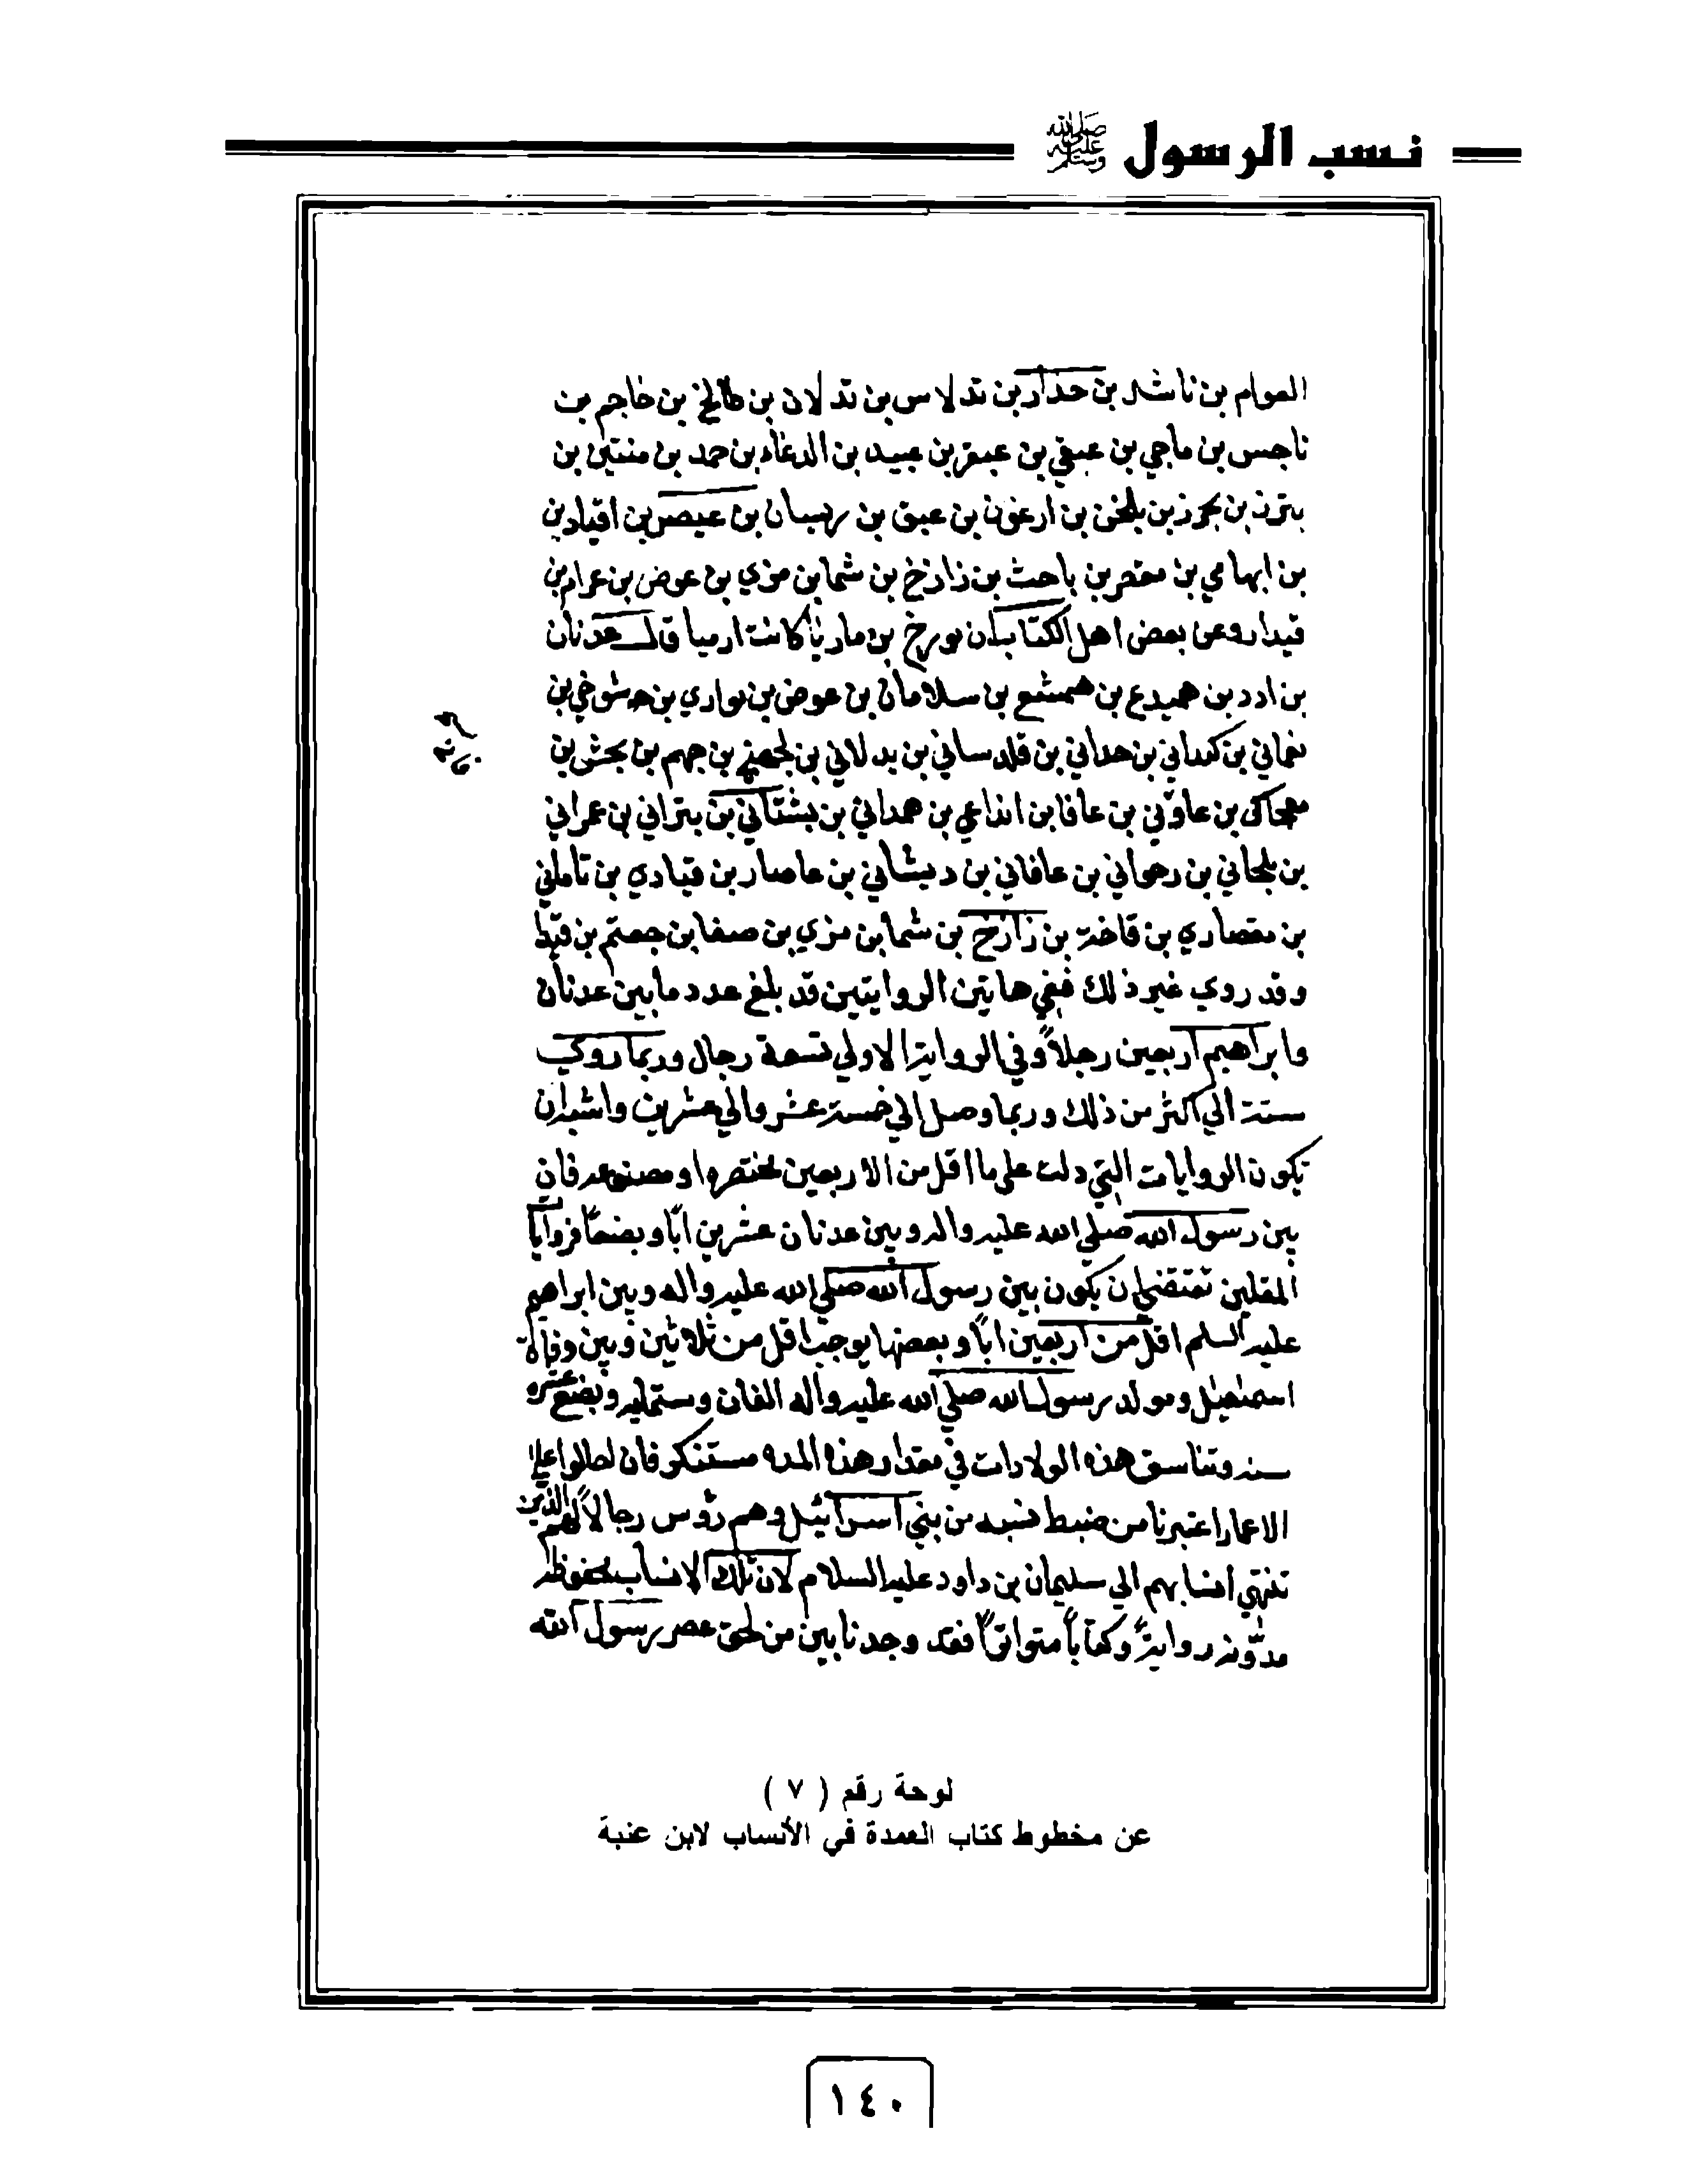 نسب الرسول ﷺ
العوام بن ناشد بن حذار بن تدلاس بن تدلان بن طالخ بن خاجم بن
ناجس بن ماجي بن عبقي بن عبقر بن عبيد بن الدعاء بن حمد بن منتين بن
يترز بن بحرز بن يلخن بن ارعون بن عبق بن ريسان بن عيصر بن اقياد بن
بن ايهامي بن مقصر بن باحث بن زارخ بن شما بن مزي بن عوض بن عرام بن
قيدار وعن بعض اهل الكتاب ان بورخ بن ماريا كاتب ارميا قال عدنان
بن ادد بن هميدع بن همشع بن سلامان بن عوض بن بواري بن شوخي بن
نعماني بن كداني بن حداني بن قلدساني بن بدلاني بن لجهني بن جهم بن بحش بن
معجاكي بن عاوني بن عاقا بن انداعي بن همداني بن بشتاني بن بتراني بن عمراني
بن يلحاني بن رعواني بن عاقاني بن ديشاني بن عاصار بن قيادي بن تاملي
بن مقصاري بن قاخت بن زارخ بن شما بن مزي بن صفا بن جعثم بن
وقد روي غير ذلك ففي هاتين الروايتين قد بلغ عدد ما بين عدنان
وابراهيم اربعين رجلاً وفي الرواية الاولي تسعة رجال وربما روي
ستة الي اكثر من ذلك وربما وصل الي خمسة عشر والي عشرين واشبه ان
يكون الروايات التي دلت علي ما اقل من الاربعين مختصره او مصنوعه فان
بين رسول الله صلي الله عليه واله وبين عدنان عشرين اباً وبضعاً فروايات
المقلين تقتضي ان يكون بين رسول الله صلي الله عليه واله وبين ابراهيم
عليه السلم اقل من اربعين اباً وبعضها يوجب اقل من ثلاثين وبين وفاة
اسمعيل ومولد رسول الله صلي الله عليه واله الفان وستمايه وبضع عشره
سنه وتناسق هذه الولادات في مقدار هذه المده مستنكر فان احالوا علي
الاعمار اعتبرنا من ضبط نسبه من بني اسرائيل وهم رؤس رجالاتهم الذين
تنتهي انسابهم الي سليمان بن داود عليه السلام لان تلك الانساب محفوظه
مدونه رواية وكتاباً متواتراً فقد وجدنا بين من لحق عصر رسول الله
لوحة رقم ( ٧ )
عن مخطوط كتاب العمدة في الأنساب لابن عنبة
١٤٠